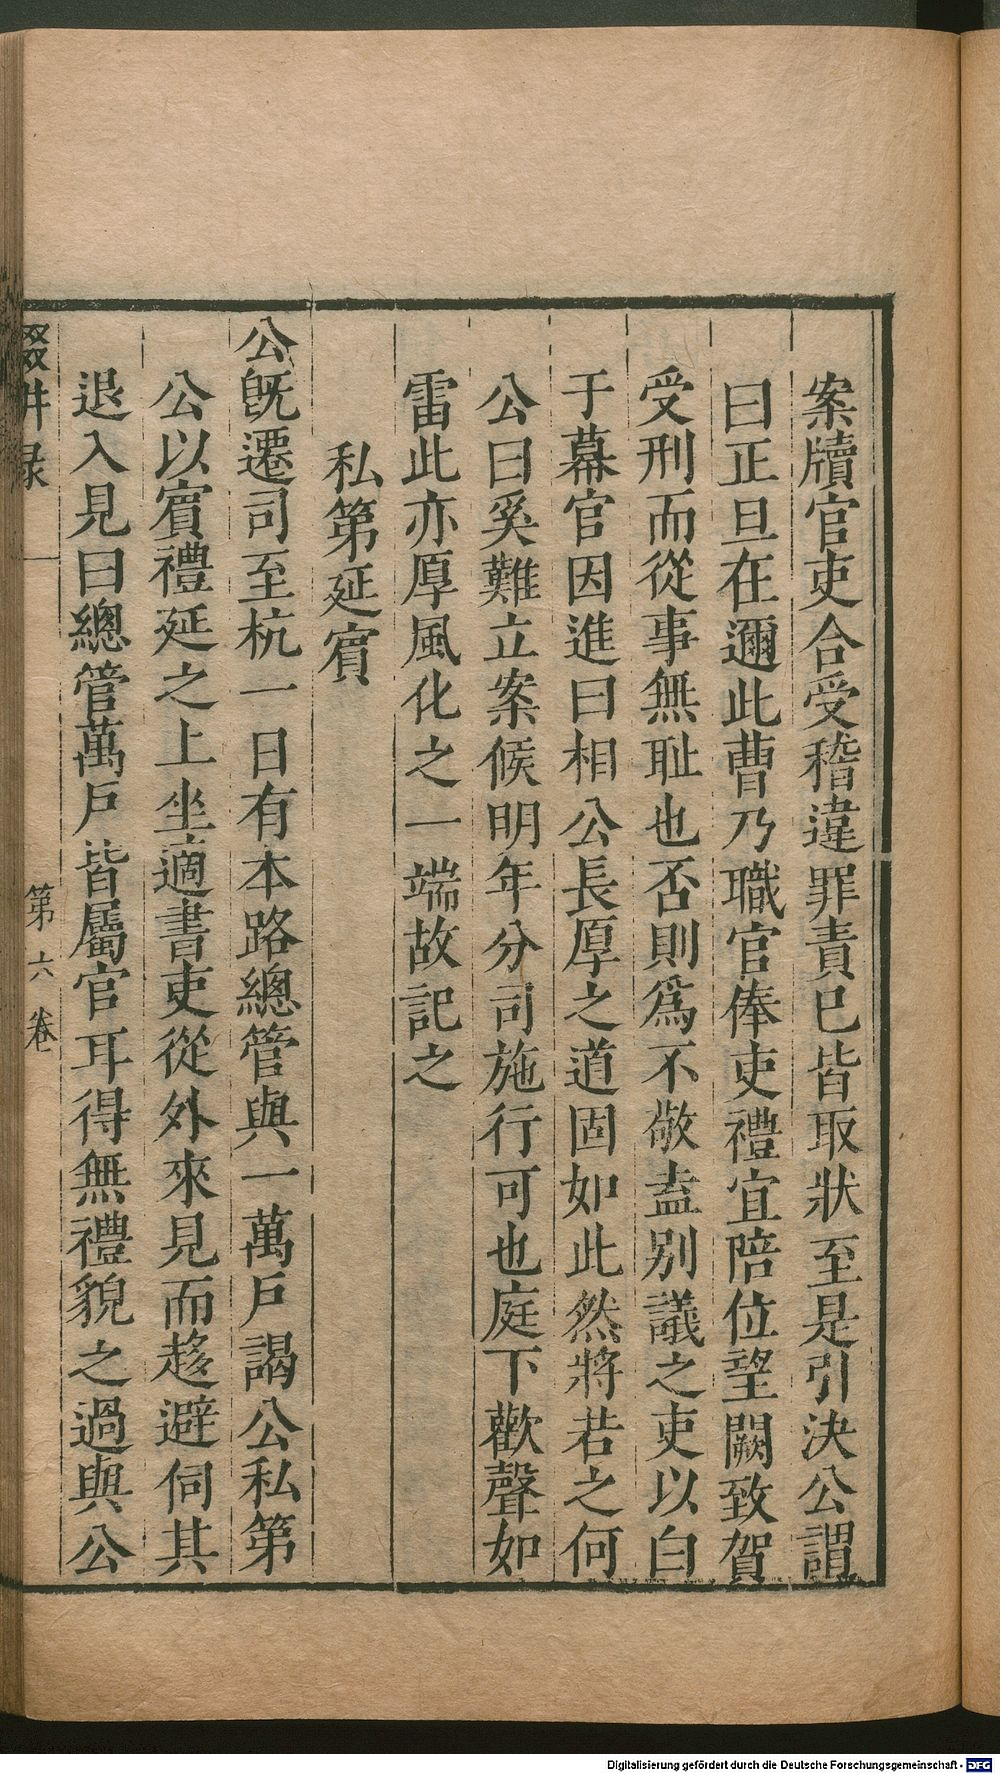 案牘官吏合受稽違罪責已皆取狀至是引決公謂
曰正旦在邇此曹乃職官俸吏禮宜陪位望闕致賀
受刑而從事無耻也否則爲不敬盍别議之吏以白
于幕官因進曰相公長厚之道固如此然將若之何
公曰奚難立案候明年分司施行可也庭下歡聲如
雷此亦厚風化之一端故記之
私第延賓
公旣遷司至杭一日有本路總管與一萬戶謁公私第
公以賓禮延之上坐適書吏從外來見而趍避伺其
退入見曰總管萬戶皆屬官耳得無禮貌之過與公
輟畊录
第六卷
Digitalisierung gefördert durch die Deutsche Forschungsgemeinschaft - DFG